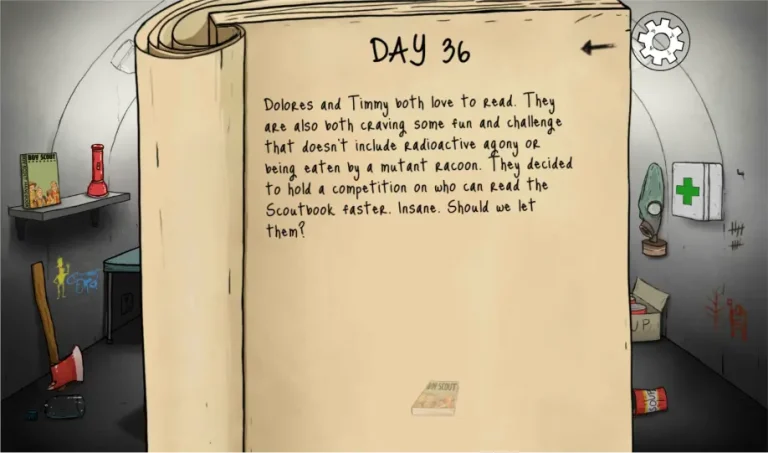 DAY 36
Dolores and Timmy both love to read. They
are also both craving some fun and challenge
that doesn't include radioactive agony or
being eaten by a mutant racoon. They decided
to hold a competition on who can read the
Scoutbook faster. Insane. Should we let
them?
BOY SCOUT
BOY SCOUT
SOUP